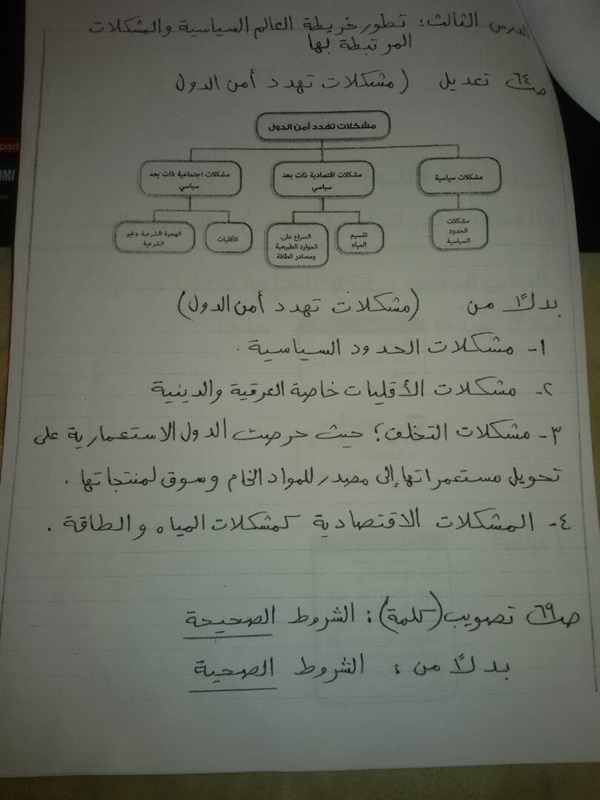 الدرس الثالث: تطور خريطة العالم السياسية والمشكلات
المرتبطة بها
ص٦٤ تعديل (مشكلات تهدد أمن الدول
مشكلات تهدد أمن الدول
مشكلات سياسية
مشكلات اقتصادية ذات بعد
سياسي
مشكلات اجتماعية ذات بعد
سياسي
مشكلات
الحدود
السياسية
تقسيم
المياه
الصراع على
الموارد الطبيعية
ومصادر الطاقة
الأقليات
الهجرة الشرعية وغير
الشرعية
بدلاً من (مشكلات تهدد أمن الدول)
١- مشكلات الحدود السياسية.
٢- مشكلات الأقليات خاصة العرقية والدينية
٣- مشكلات التخلف؛ حيث حرصت الدول الاستعمارية على
تحويل مستعمراتها إلى مصدر للمواد الخام وسوق لمنتجاتها.
٤- المشكلات الاقتصادية كمشكلات المياه والطاقة.
ص٦٩ تصويب (كلمة): الشروط الصحيحة
بدلاً من: الشروط الصحية